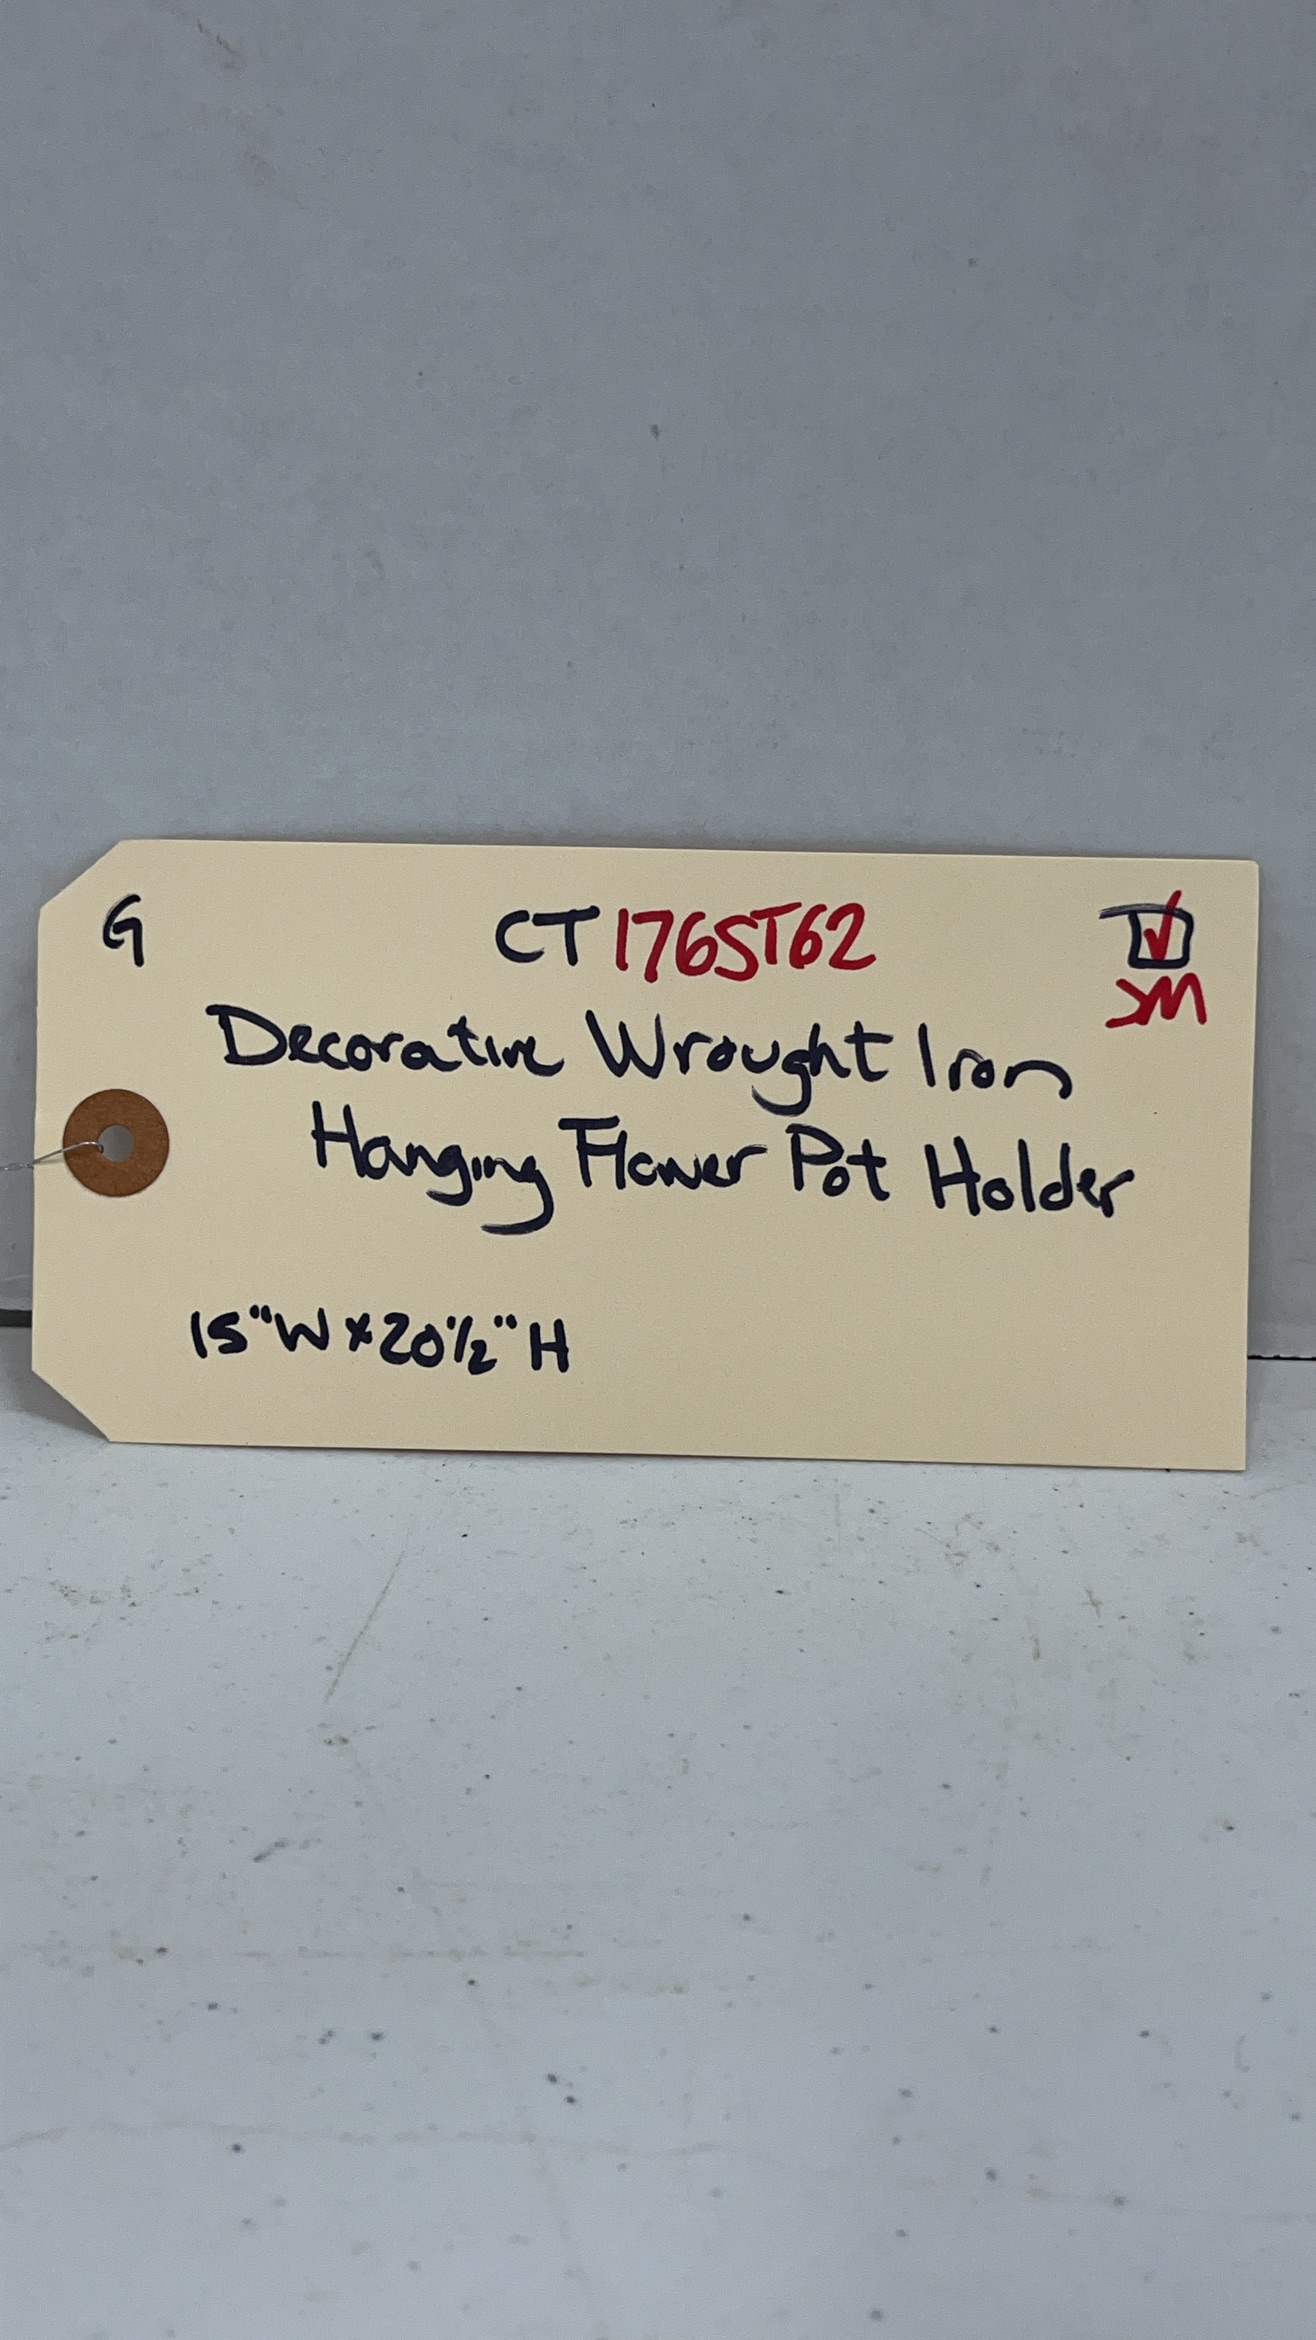 G CT1765T62
SM
Decorative Wrought Iron
Hanging Flower Pot Holder
15"W x 20 1/2" H